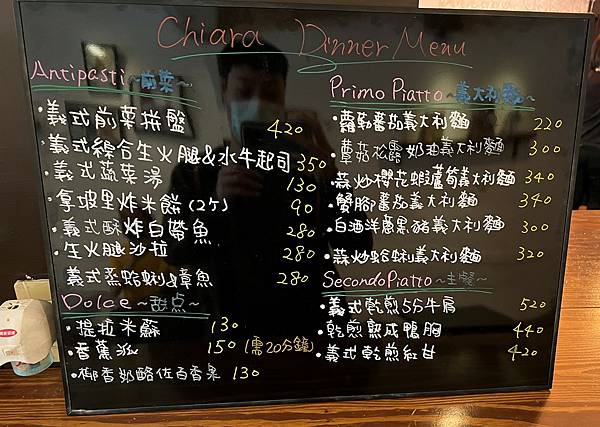 Chiara Dinner Menu
Antipasti~前菜~
·義式前菜拼盤 420
·義式綜合生火腿&水牛起司 350
·義式蔬菜湯 130
·拿坡里炸米餅(2ケ) 90
·義式酥炸白帶魚 280
·生火腿沙拉 280
·義式蒸蛤蜊&章魚 280
Dolce~甜点~
·提拉米蘇 130
·香蕉派 150 (需20分鐘)
·椰香奶酪佐百香果 130
Primo Piatto~義大利麵~
·蘿勒番茄義大利麵 220
·蕈菇松露奶油義大利麵 300
·蒜炒櫻花蝦蘆筍義大利麵 340
·蟹腳番茄義大利麵 340
·白酒洋蔥黑豬義大利麵 300
·蒜炒蛤蜊義大利麵 320
Secondo Piatto~主餐~
·義式乾煎5分牛肩 520
·乾煎熟成鴨胸 440
·義式乾煎紅甘 420